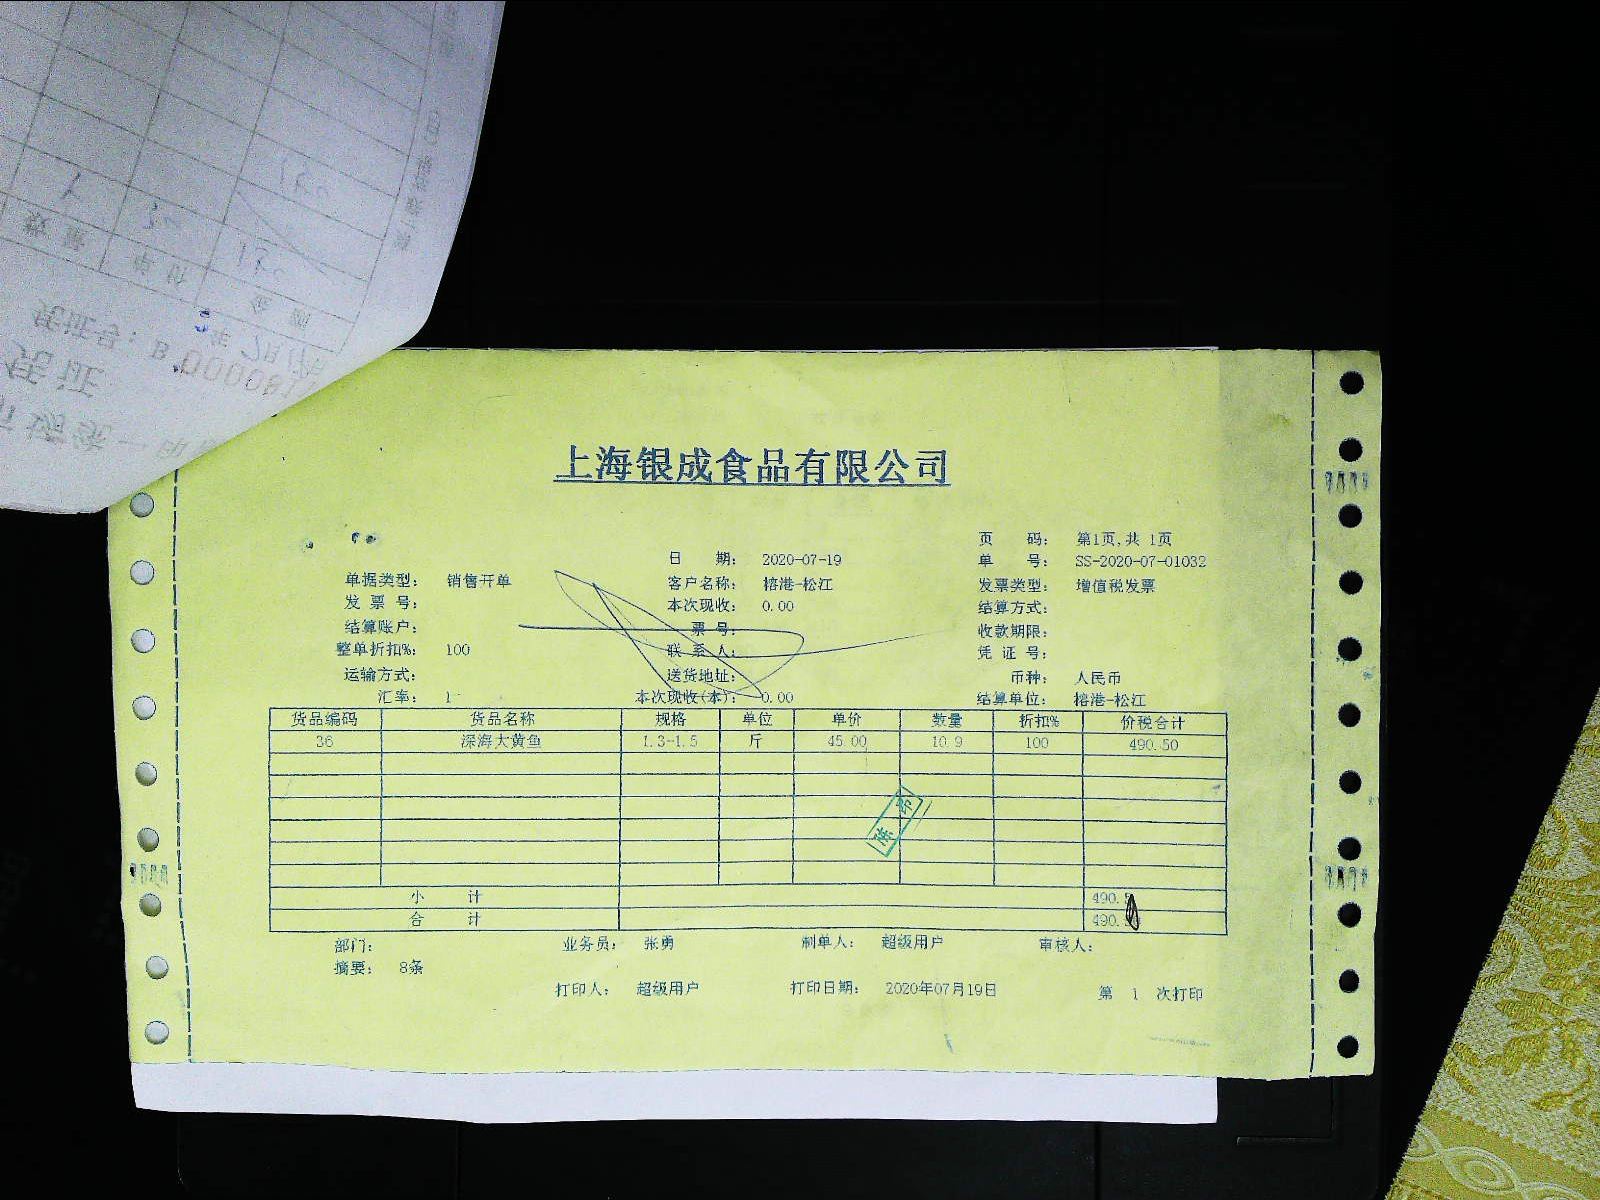 凭证号：B 00008
年 7月17日
金 额
数 量
单 价
上海银成食品有限公司
页 码： 第1页,共 1页
日 期： 2020-07-19
单 号： SS-2020-07-01032
单据类型： 销售开单
客户名称： 榕港-松江
发票类型： 增值税发票
发 票 号：
本次现收： 0.00
结算方式：
结算账户：
票 号：
收款期限：
整单折扣%： 100
联 系 人：
凭 证 号：
运输方式：
送货地址：
币种： 人民币
汇率： 1
本次现收(本)： 0.00
结算单位： 榕港-松江
货品编码 货品名称 规格 单位 单价 数量 折扣% 价税合计
36 深海大黄鱼 1.3-1.5 斤 45.00 10.9 100 490.50
小 计 490.5
合 计 490.
部门： 业务员： 张勇 制单人： 超级用户 审核人：
摘要： 8条
打印人： 超级用户 打印日期： 2020年07月19日 第 1 次打印